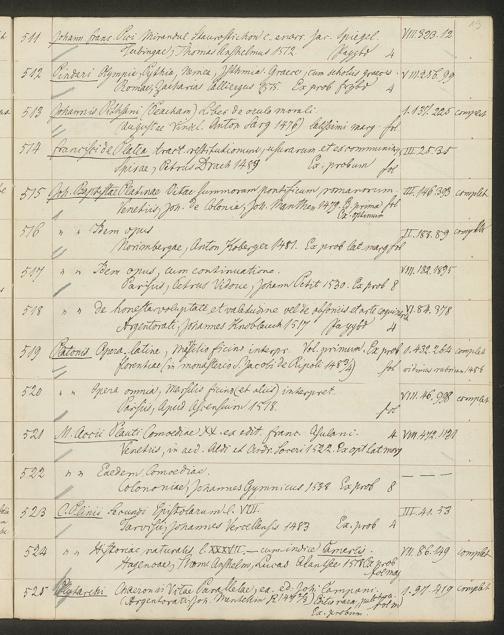 511 Johann. Franc. Pici Mirandul Staurostichon c. enarr. Jac. Spiegel VIII.523.12
Tubingae, Thomas Anshelmus 1512 4
512 Pindari Olympia, Pythia, Nemea, Isthmia. Graece, cum scholiis graecis VII.256.99
Romae, Zacharias Calliergus 1515. Ex prob 4
513 Johannis (Peacham) Liber de oculo morali. I.137.225 complet
(Augustae Vindel. Anton Sorg 1476) marg fol
514 Francisci de Platea tract. restitutionum, usurarum et excommunic III.25.35
Spirae, Petrus Drach 1489 Ex. probum fol
515 Joh. Baptistae Platinae Vitae summorum pontificum romanorum. III.146.393 complet
Venetiis, Joh. de Colonia, Joh. Manthen 1479. Ex prima fol
Ex optimum
516 " " Idem opus II.188.89 complet
Norimbergae, Anton Koberger 1481. Ex prob lat marg fol
517 " " Idem opus, cum continuatione. VIII.132.1895
Parisiis, Petrus Vidoue, Johann Petit 1530. Ex prob 8
518 " " De honesta voluptate et valetudine vel de obsoniis et arte coquinaria VI.84.378
Argentorati, Johannes Knoblauch 1517 4
519 Platonis Opera, latine, Marsilio Ficino interpr. Vol. primum. Ex prob I.432.264 complet
Florentiae, in monasterio S. Jacobi de Ripoli fol
520 " " Opera omnia, Marsilii Ficini (et aliud) interpret. VIII.46.998 complet
Parisiis, Apud Ascensium 1518. fol
521 M. Accii Plauti Comoediae XX. ex edit. Franc. 4 VIII.472.1171
Venetiis, in aed. Aldi et Andr. Soceri 1522. Ex opt lat marg
522 " " Eaedem Comoediae. — — —
Coloniae, Johannes Gymnicus 1538 Ex prob 8
523 C. Plinii Secundi Epistolarum l. VIII. III.41.53
Tarvisii, Johannes Vercellensis 1483 Ex. prob 4
524 " " Historiae naturalis l. XXXVII. — cum indice Camertis. VII.86.149 complet
Hagenoae, Thom. Anshelm, Lucas Alantsee 1518 Ex prob
fol maj
525 Plutarchi Chaeronei Vitae Parallelae, ea. ed. Joh. Campani. I.97.419 complet
(Argentorati Joh. Mentelin) Ed. rara, fol m
Ex. probum